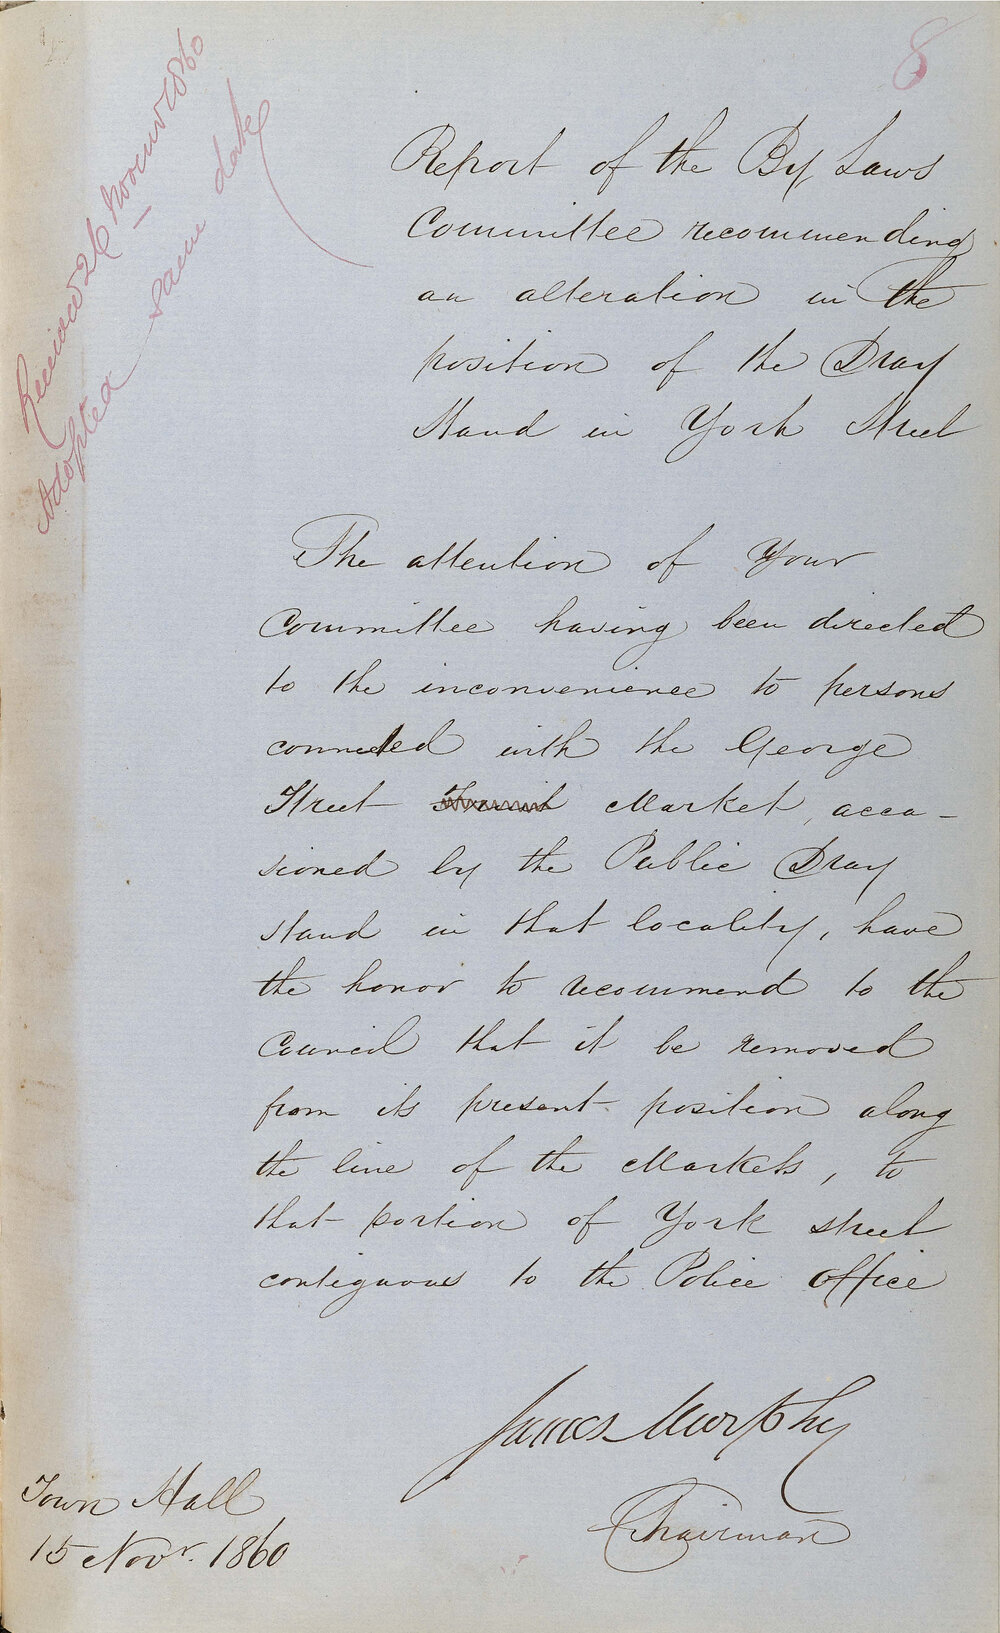 8
Received 26 Novemr 1860
Adopted same date
Report of the By Laws
Committee recommending
an alteration in the
position of the Dray
Stand in York Street
The attention of Your
Committee having been directed
to the inconvenience to persons
connected with the George
Street Market, occa-
sioned by the Public Dray
stand in that locality, have
the honor to recommend to the
Council that it be removed
from its present position along
the line of the Markets, to
that portion of York street
contiguous to the Police Office
James Murphy
Chairman
Town Hall
15 Novr. 1860